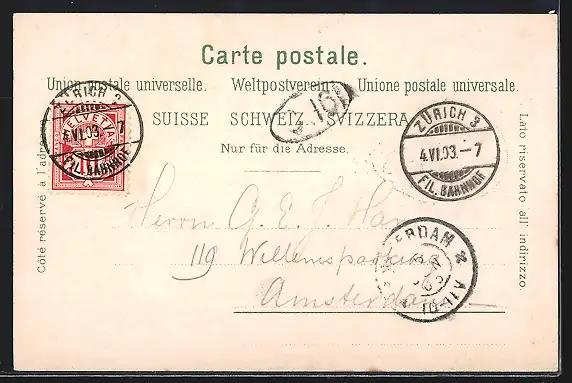 Carte postale.
Union postale universelle. Weltpostverein. Unione postale universale.
SUISSE SCHWEIZ SVIZZERA
Nur für die Adresse.
Côté réservé à l'adresse
Lato riservato all' indirizzo.
ZÜRICH 3
4.VI.03.–7
FIL. BAHNHOF
HELVETIA
10
ZÜRICH 3
4.VI.03.–7
FIL. BAHNHOF
161
AMSTERDAM
Herrn G. E. J.
119 Willemsparkweg
Amsterdam